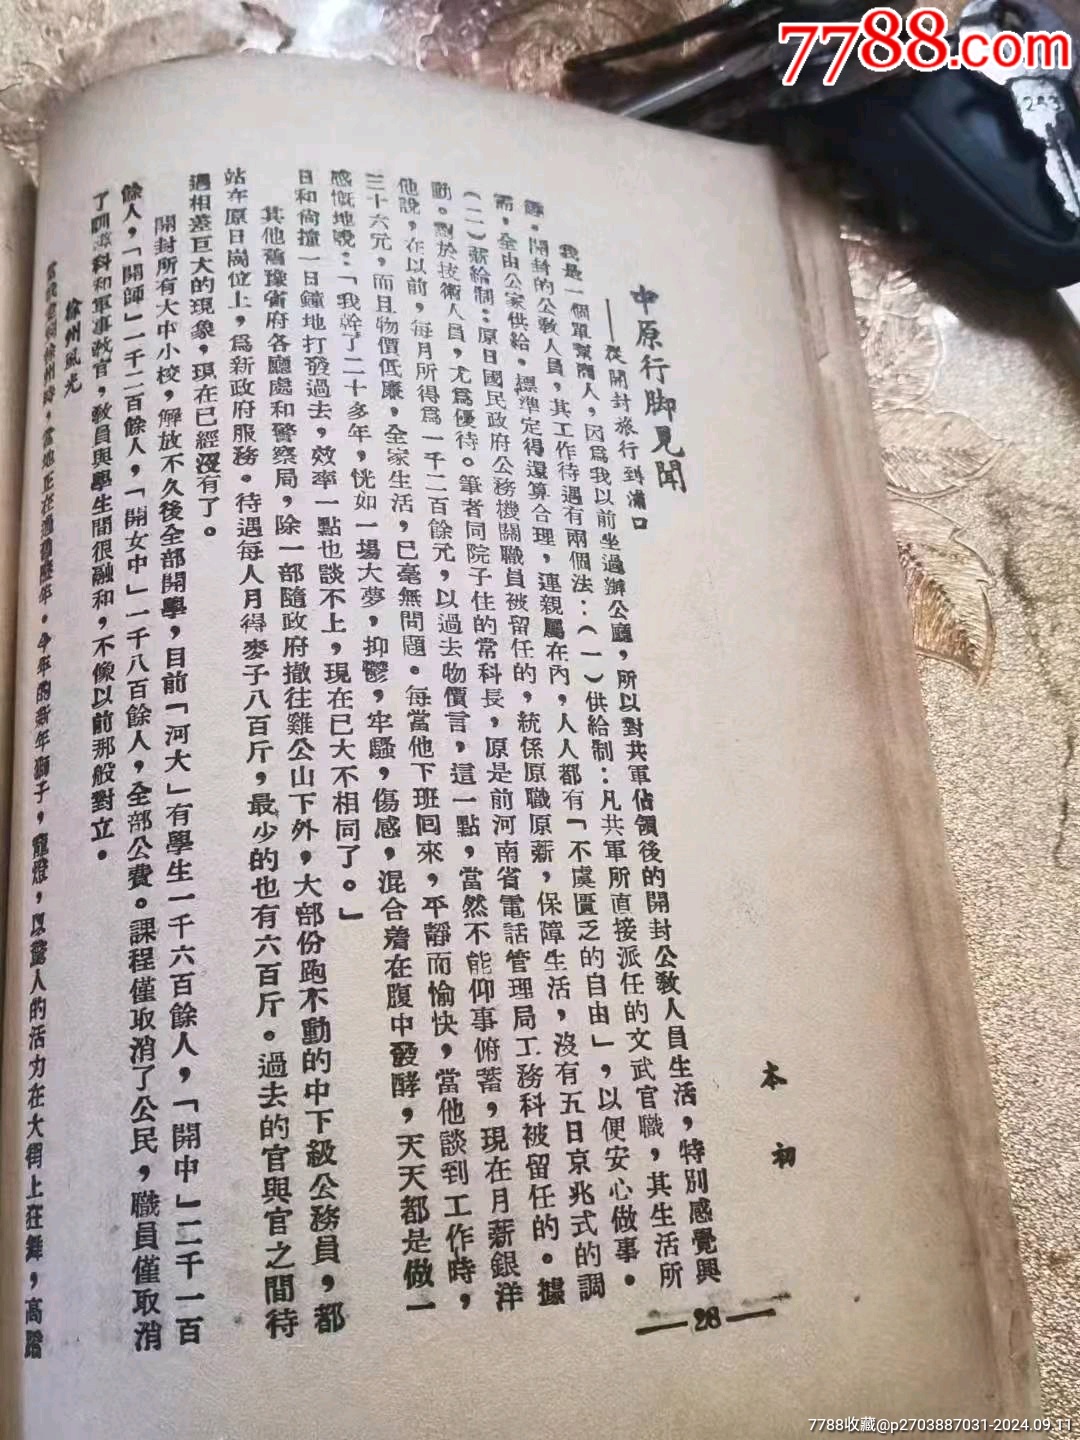 7788.com
中原行脚見聞
——從開封旅行到浦口
本初
我是一個單幫商人，因爲我以前坐過辦公廳，所以對共軍佔領後的開封公敎人員生活，特別感覺興
趣。開封的公敎人員，其工作待遇有兩個法：（一）供給制：凡共軍所直接派任的文武官職，其生活所
需，全由公家供給，標準定得還算合理，連親屬在內，人人都有「不虞匱乏的自由」，以便安心做事。
（二）薪給制：原日國民政府公務機關職員被留任的，統係原職原薪，保障生活，沒有五日京兆式的調
動。對於技術人員，尤爲優待。筆者同院子住的常科長，原是前河南省電話管理局工務科被留任的。據
他說，在以前，每月所得爲一千二百餘元，以過去物價言，這一點，當然不能仰事俯蓄，現在月薪銀洋
三十六元，而且物價低廉，全家生活，已毫無問題。每當他下班回來，平靜而愉快，當他談到工作時，
感慨地說：「我幹了二十多年，恍如一場大夢，抑鬱，牢騷，傷感，混合着在腹中發酵，天天都是做一
日和尙撞一日鐘地打發過去，效率一點也談不上，現在已大不相同了。」
其他舊豫省府各廳處和警察局，除一部隨政府撤往雞公山下外，大部份跑不動的中下級公務員，都
站在原日崗位上，爲新政府服務。待遇每人月得麥子八百斤，最少的也有六百斤。過去的官與官之間待
遇相差巨大的現象，現在已經沒有了。
開封所有大中小校，解放不久後全部開學，目前「河大」有學生一千六百餘人，「開中」二千一百
餘人，「開師」一千二百餘人，「開女中」一千八百餘人，全部公費。課程僅取消了公民，職員僅取消
了訓導科和軍事敎官，敎員與學生間很融和，不像以前那般對立。
徐州風光
當我走到徐州時，當地正在過舊曆年。今年的新年獅子，龍燈，以驚人的活力在大街上狂舞，高蹈
—28—
243
7788收藏@p2703887031-2024.09.11